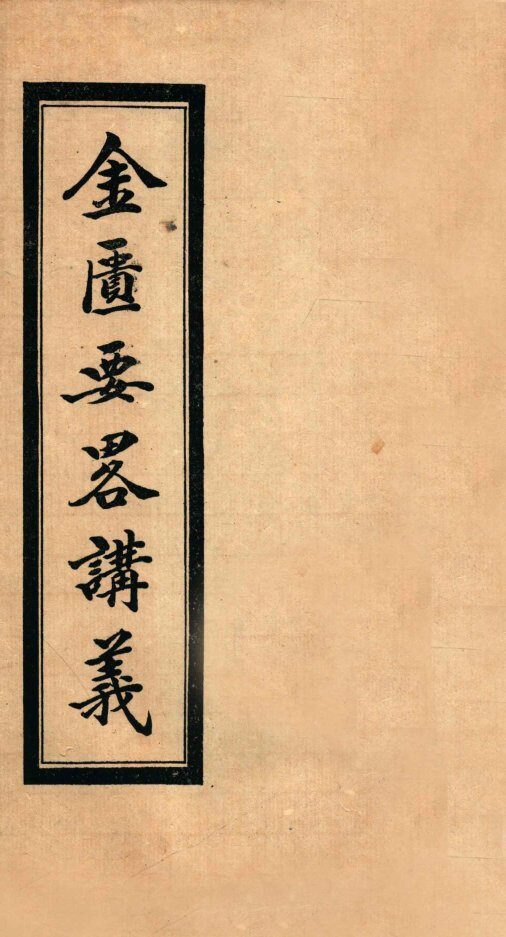 金匱要畧講義